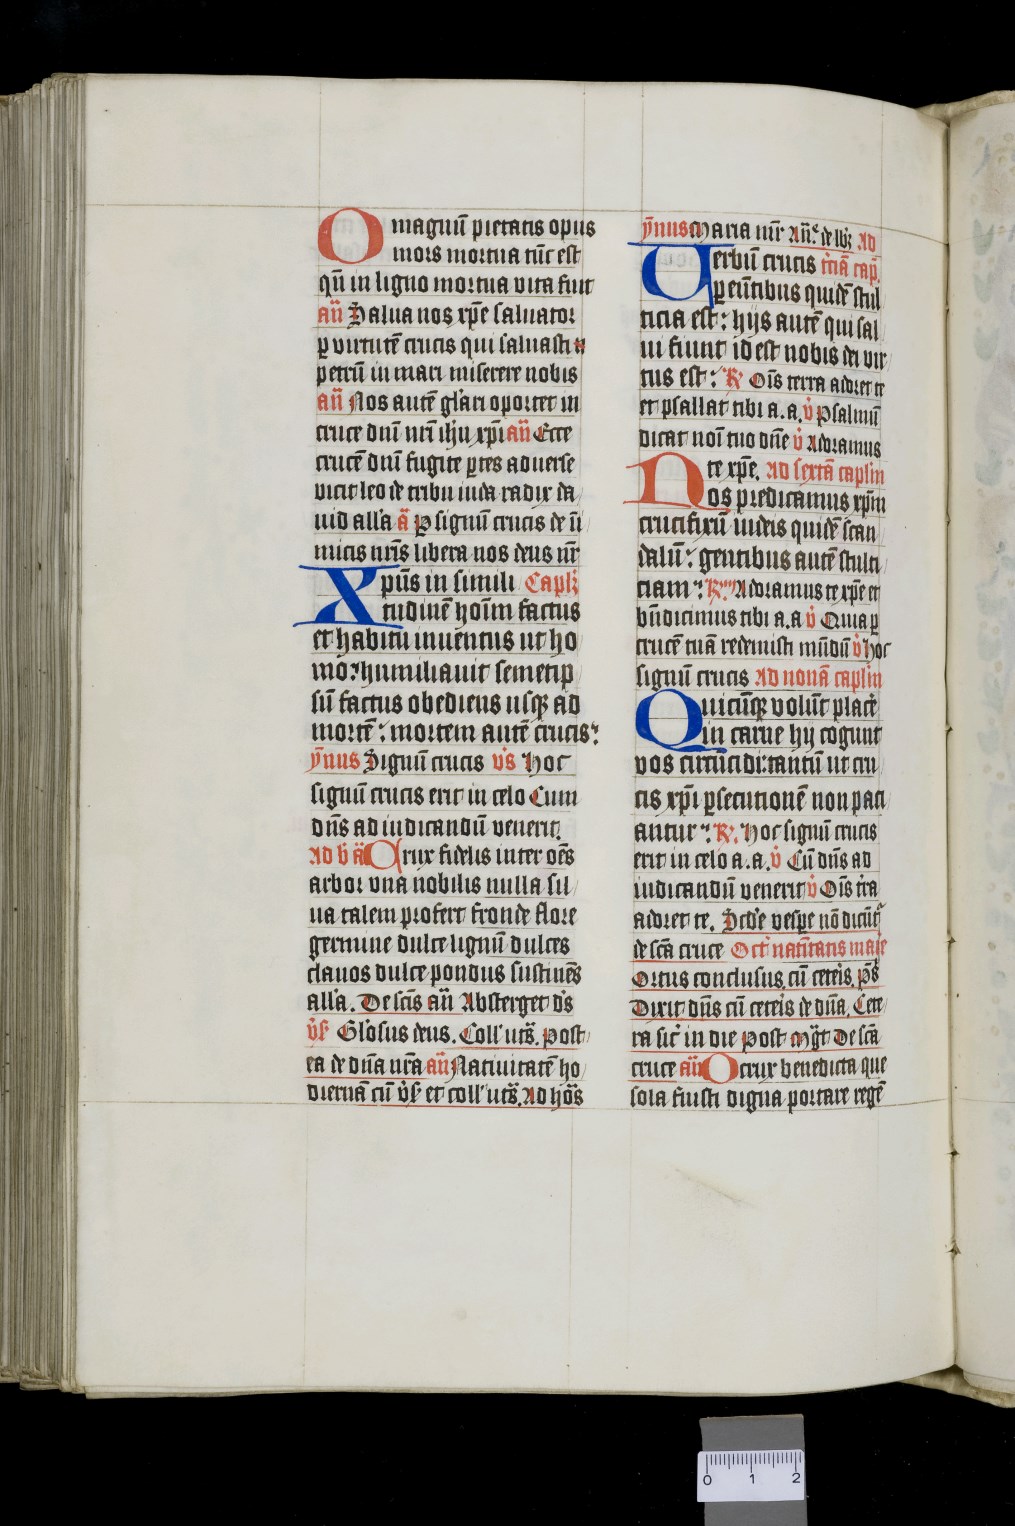 O magnū pietatis opus
mors mortua tūc est
qn̄ in ligno mortua vita fuit
an̄ Salua nos xp̄e saluator
ꝑ virtutē crucis qui saluasti
petrū in mari miserere nobis
an̄ Nos autē gl'ari oportet in
cruce dn̄i nr̄i ih'u xp̄i an̄ Ecce
crucē dn̄i fugite ꝑtes aduerse
vicit leo de tribu iuda radix da
uid all'a ā P signū crucis de in̄
imicis nr̄is libera nos deus nr̄
Xpūs in simili Capl'
tudinē hoīm factus
et habitu inuentus ut ho
mo: humiliauit semetip
sū factus obediens usqꝫ ad
mortē: mortem autē crucis:
ẏnus Signū crucis v̓s Hoc
signū crucis erit in celo Cum
dn̄s ad iudicandū venerit.
Ad b̄ ā Crux fidelis inter oēs
arbor vna nobilis nulla sil
ua talem profert fronde flore
germine dulce lignū dulces
clauos dulce pondus sustinēs
all'a. De sc̄is an̄ Absterget d's
v̓s Gl'osus deus. Coll' uts̄. post
ea de dn̄a nr̄a an̄ Natiuitatē ho
diernā cū v̓s et coll' uts̄. Ad hōs
ẏnus Maria mr̄ An̄e de lbꝫ Ad
Uerbū crucis t'ciā cap̄.
ꝑeūtibus quidē stul
ticia est: hijs autē qui sal
ui fiunt id est nobis dei vir
tus est: R Oīs terra adoret te
et psallat tibi a.a. v̓ Psalmū
dicat noī tuo dn̄e v̓ Adoramus
te xp̄e. Ad sextā capl'm
Nos predicamus xp̄m
crucifixū iudeis quidē scan
dalū: gentibus autē stulti
ciam: R Adoramus te xp̄e et
bn̄dicimus tibi a.a v̓ Quia ꝑ
crucē tuā redemisti mūdū v̓ Hoc
signū crucis Ad nonā capl'm
Quicūqꝫ volūt plac̓e
in carne hij cogunt
vos circūcidi: tantū ut cru
cis xp̄i ꝑsecutionē non paci
antur: R. Hoc signū crucis
erit in celo a.a. v̓ Cū dn̄s ad
iudicandū venerit v̓ Oīs t'ra
adoret te. Scd'e vesꝑe nō dicūt'
de sc̄a cruce Oct' natītatis ma'ie
Ortus conclusus. cū cete'is. p̄s
Dixit dn̄s cū cete'is de dn̄a. Cete
ra sic' in die post m̄gt̄ De sc̄a
cruce an̄ O crux benedicta que
sola fuisti digna portare regē